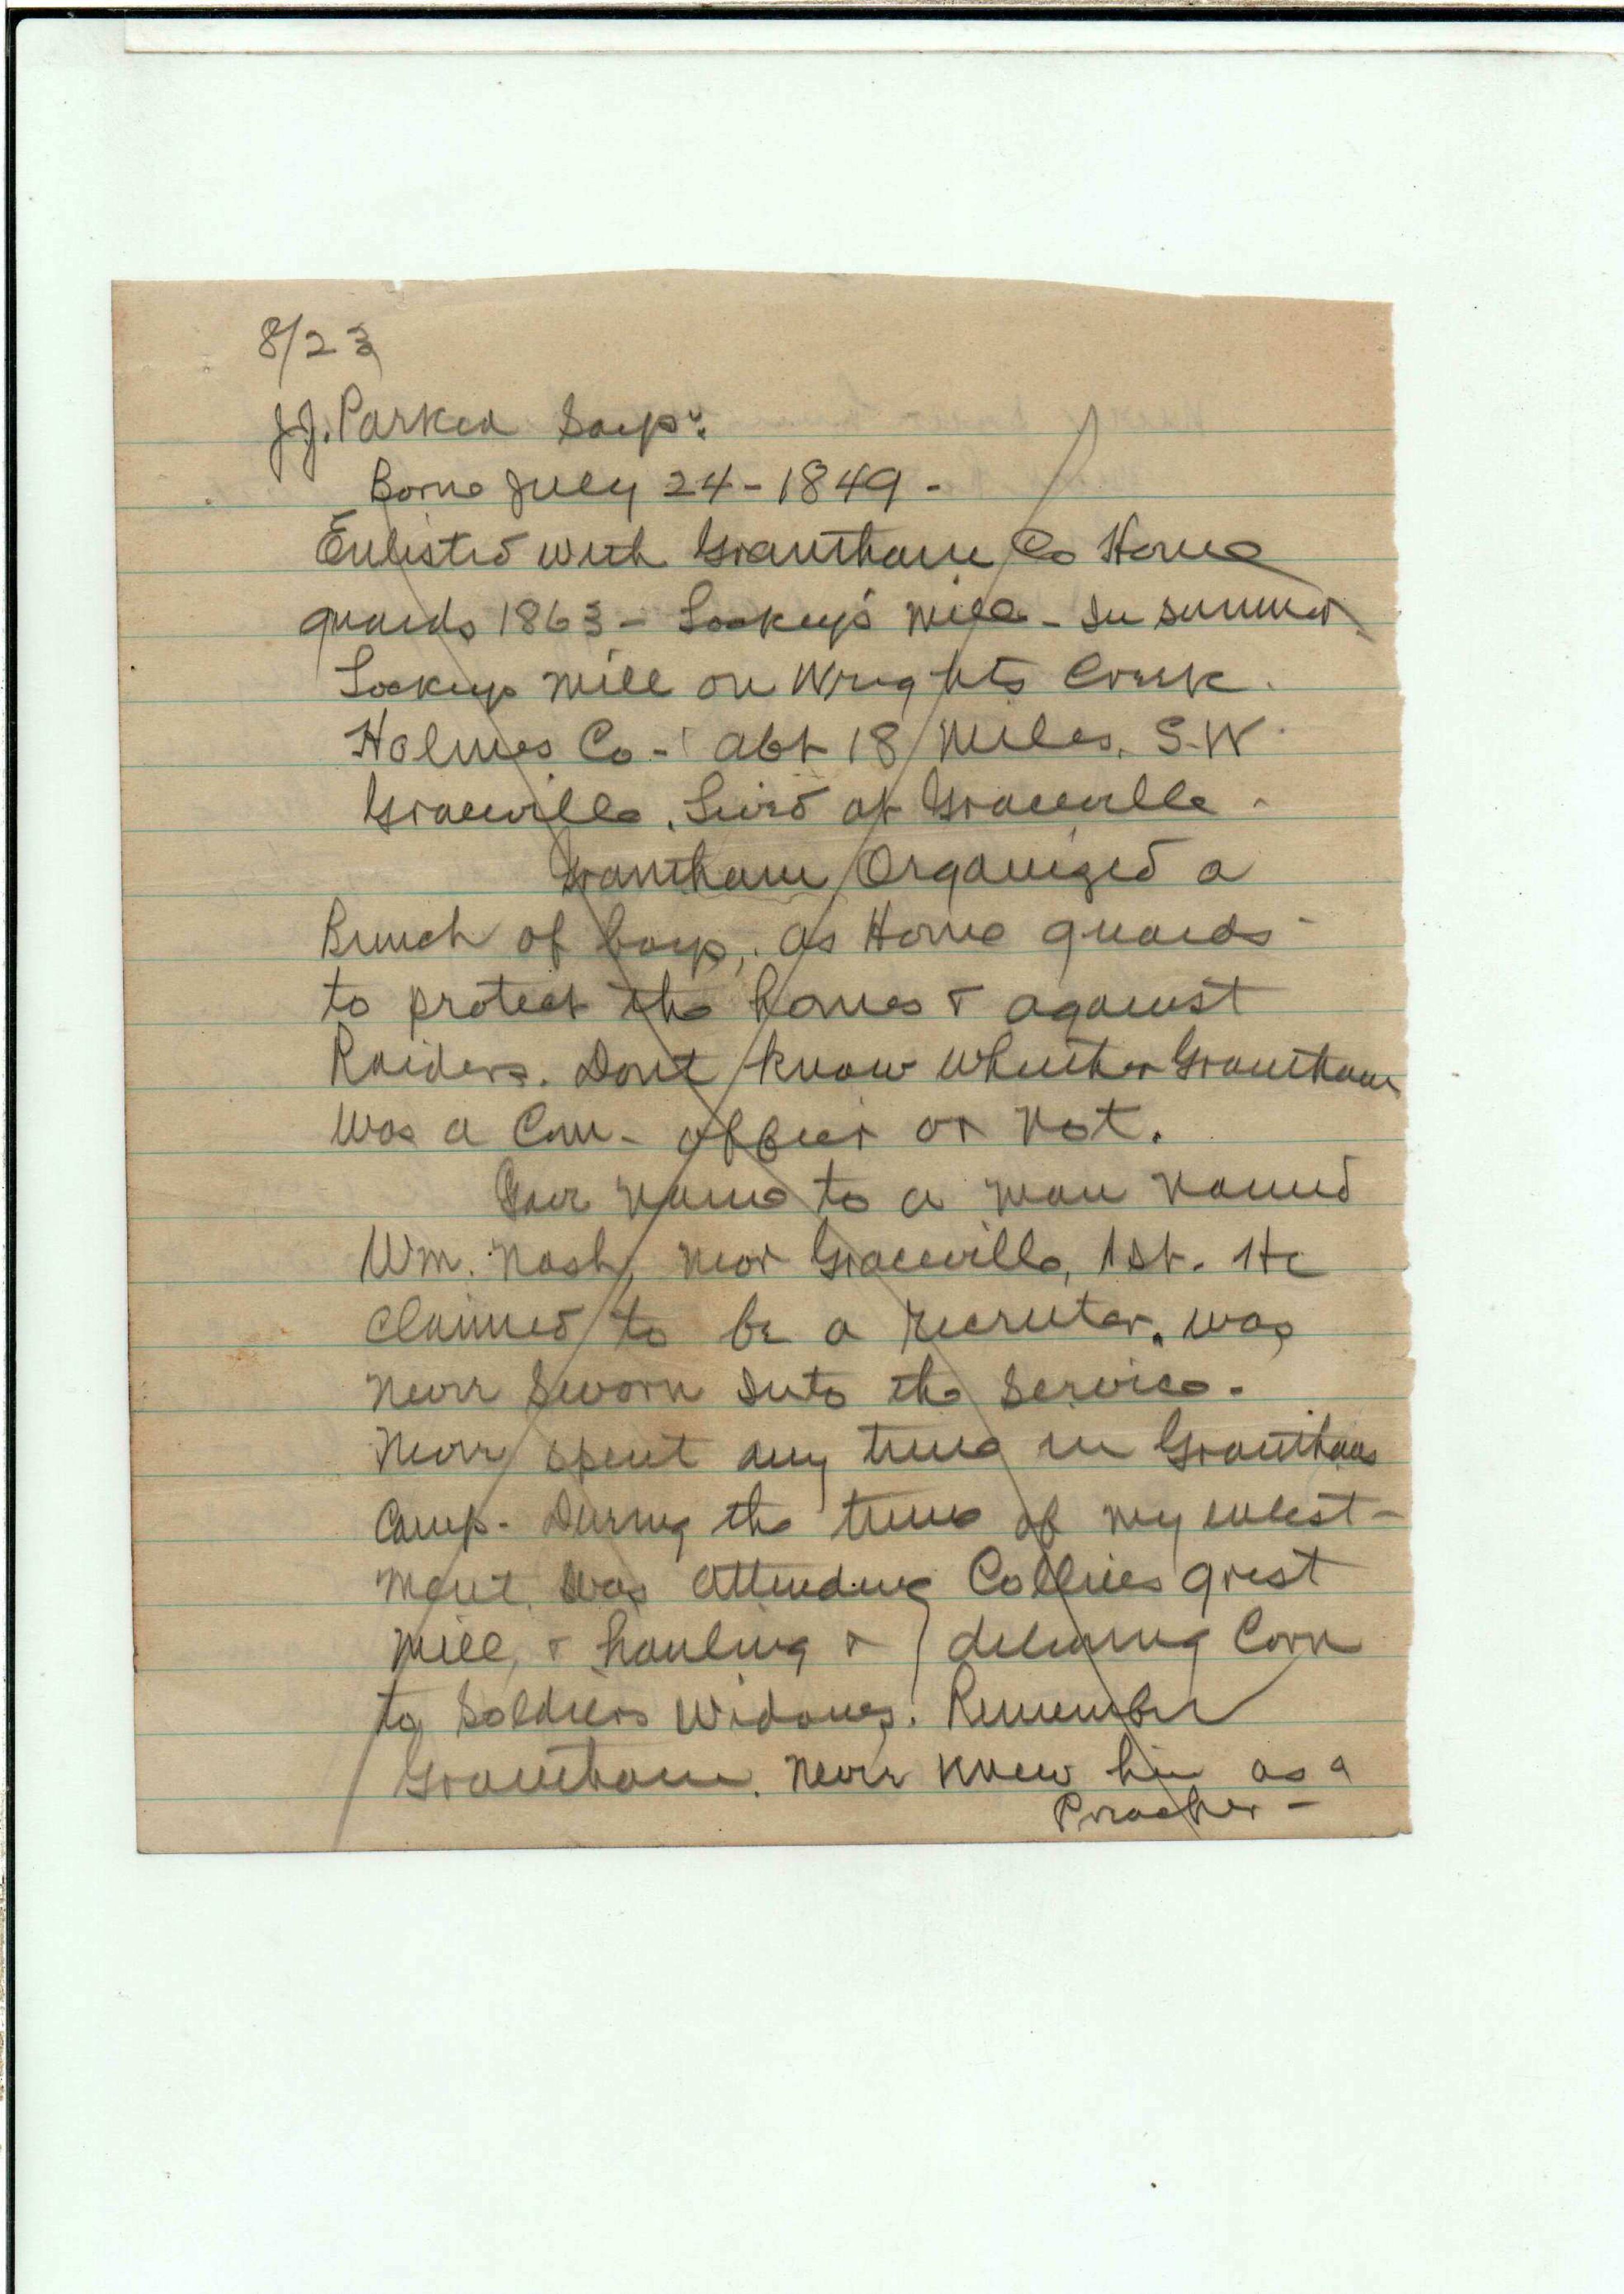 8/23
J.J. Parker Says:
Born July 24 - 1849 -
Enlisted with Grantham Co Home
guards 1863 - Lockeys Mill - In summer
Lockeys Mill on Wrights Creek.
Holmes Co - abt 18 Miles. S.W
Graceville. Lived at Graceville.
Grantham Organized a
Bunch of boys, as Home guards
to protect the homes & against
Raiders. Dont know whether Grantham
was a Com - officer or not.
Gave name to a man named
Wm. Nash, near Graceville, 1st. He
claimed to be a recruter. was
never sworn into the service.
Never spent any time in Granthams
Camp - During the time of my enlist-
ment. was attending Collins grist
mill, & hauling & delivring Corn
to Soldiers Widows. Remember
Grantham. Never knew him as a
Preacher -